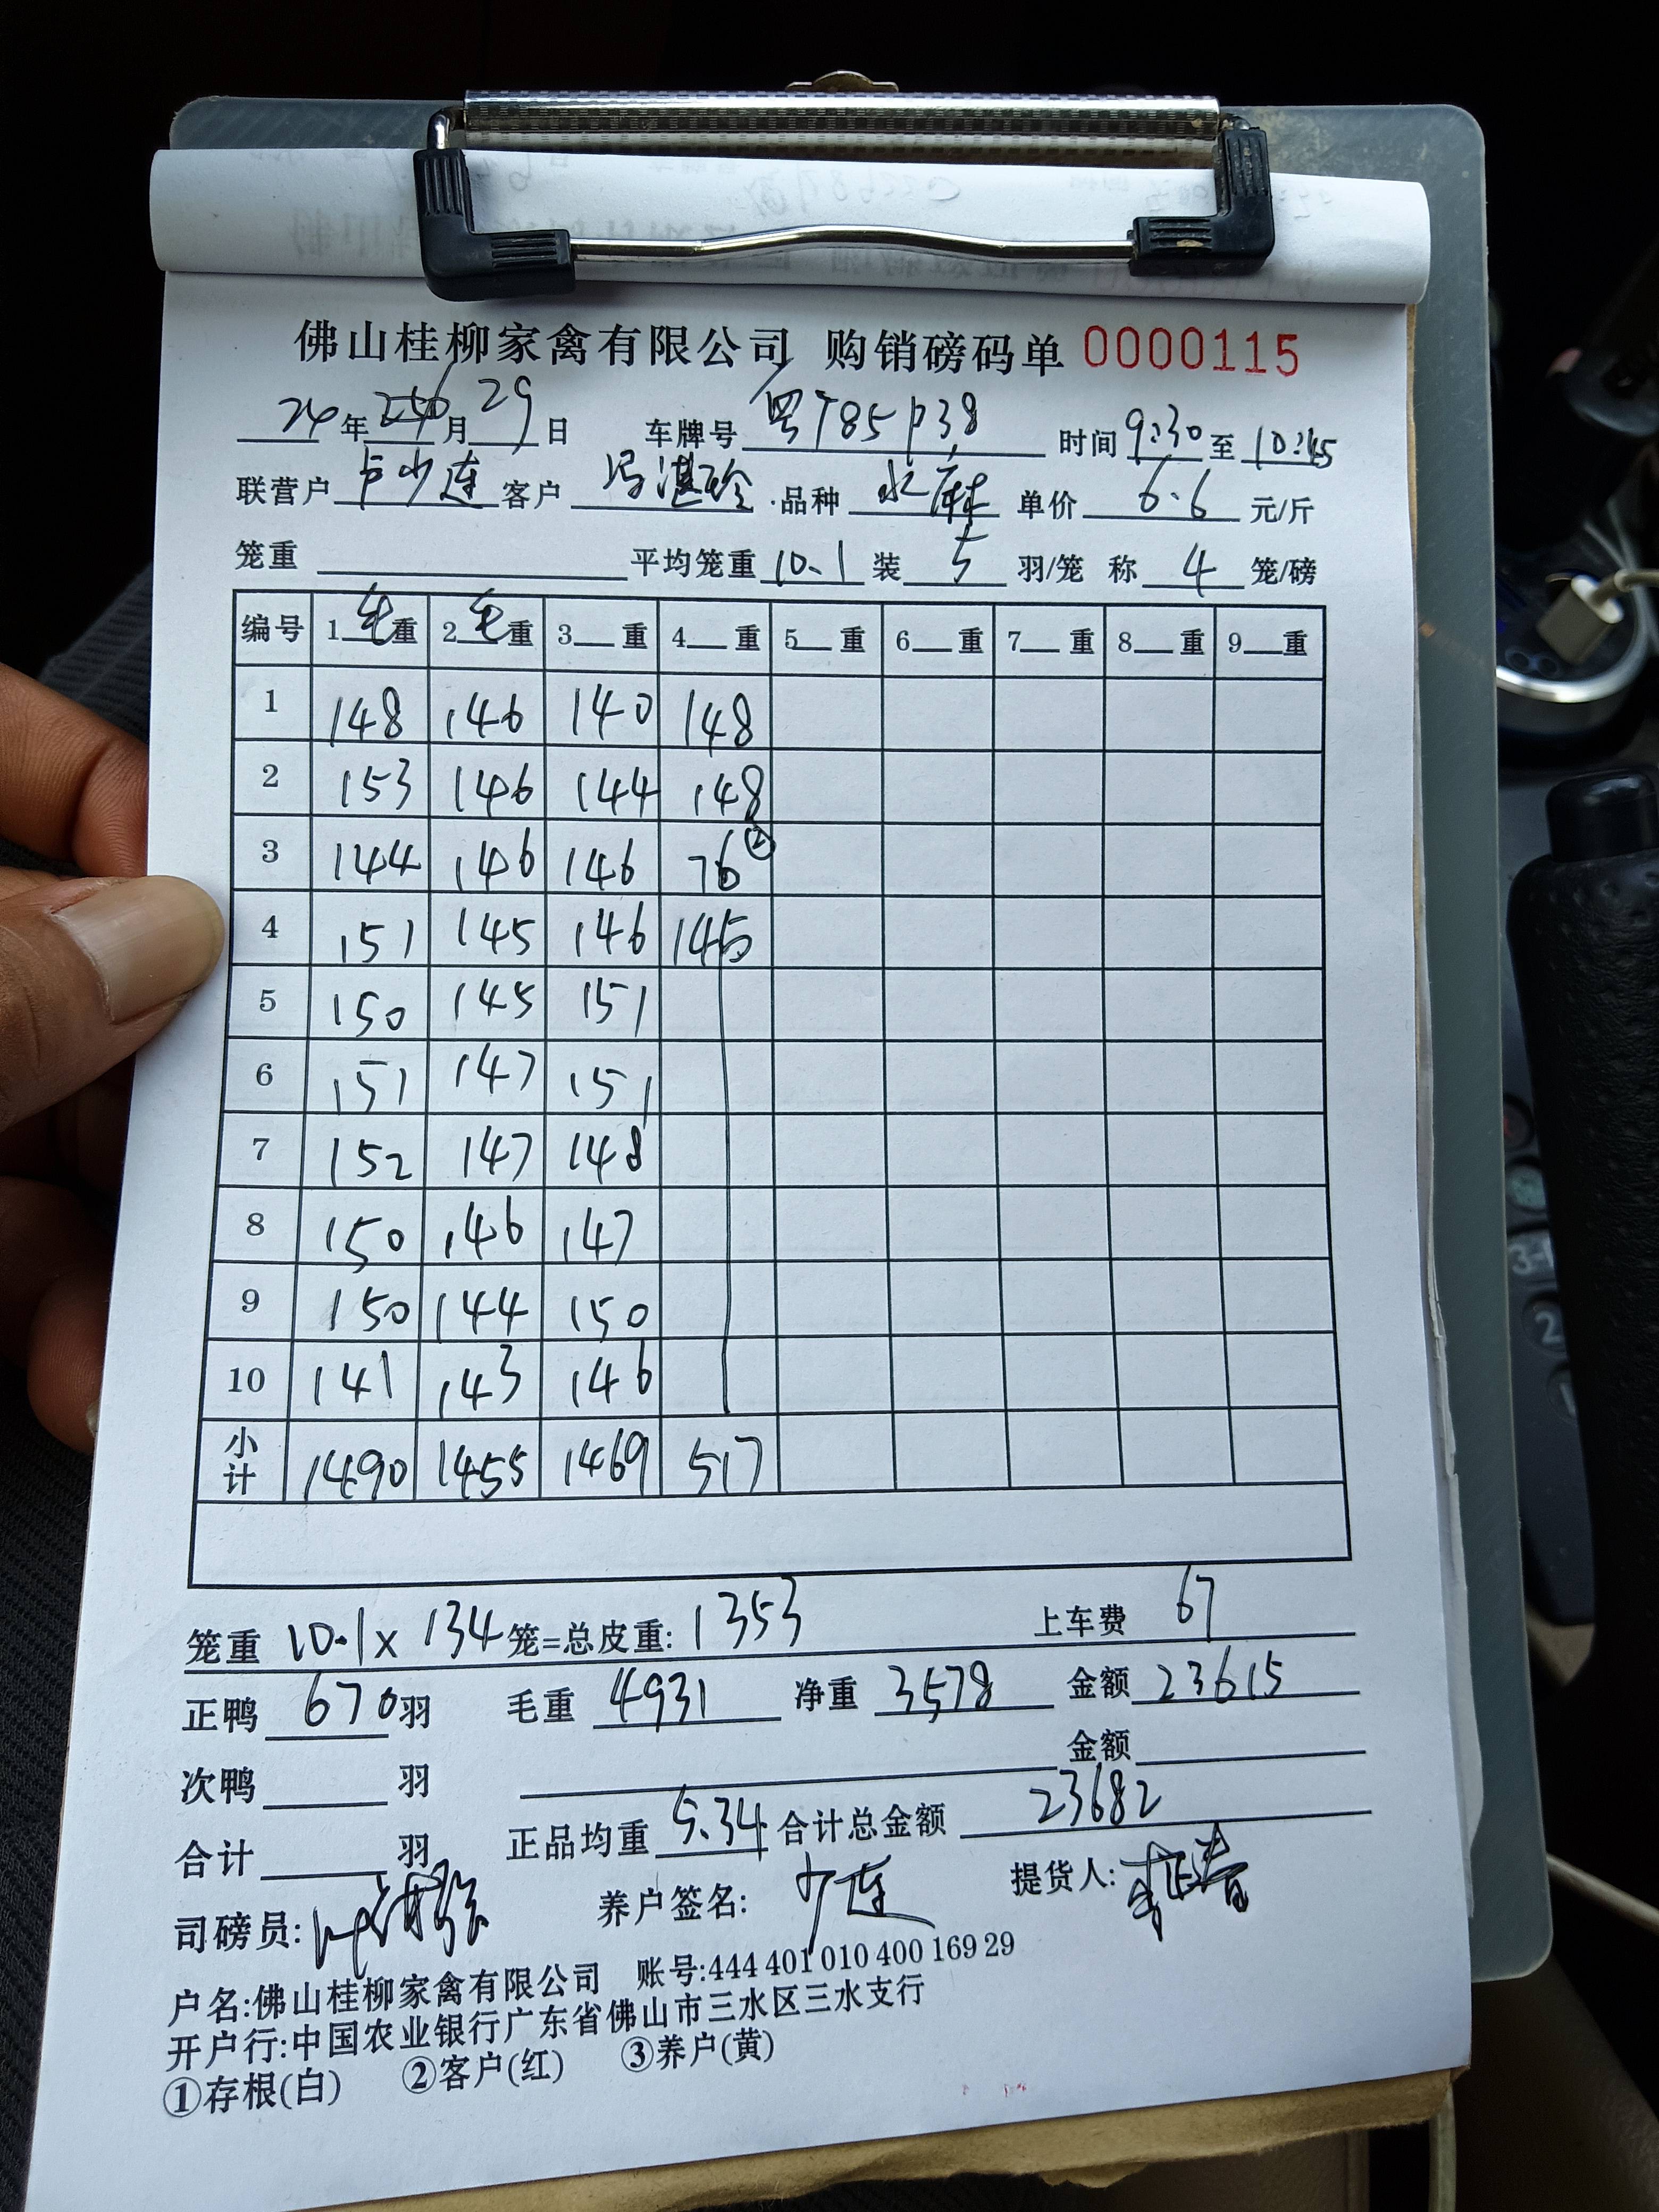 佛山桂柳家禽有限公司 购销磅码单 0000115
24年 6月29日 车牌号 粤T85P38 时间9:30至10:45
联营户 卢少连 客户 冯湛玲 品种 水麻 单价 6.6 元/斤
笼重 平均笼重 10.1 装 5 羽/笼 称 4 笼/磅
编号 1毛重 2毛重 3 重 4 重 5 重 6 重 7 重 8 重 9 重
1 148 146 140 148
2 153 146 144 148
3 144 146 146 76②
4 151 145 146 145
5 150 145 151
6 151 147 151
7 152 147 148
8 150 146 147
9 150 144 150
10 141 143 146
小计 1490 1455 1469 517
笼重 10.1x 134笼=总皮重:1353 上车费 67
正鸭 670羽 毛重 4931 净重 3578 金额 23615
次鸭 羽 金额
合计 羽 正品均重 5.34 合计总金额 23682
司磅员: 养户签名: 少连 提货人:
户名:佛山桂柳家禽有限公司 账号:444 401 010 400 169 29
开户行:中国农业银行广东省佛山市三水区三水支行
①存根(白) ②客户(红) ③养户(黄)